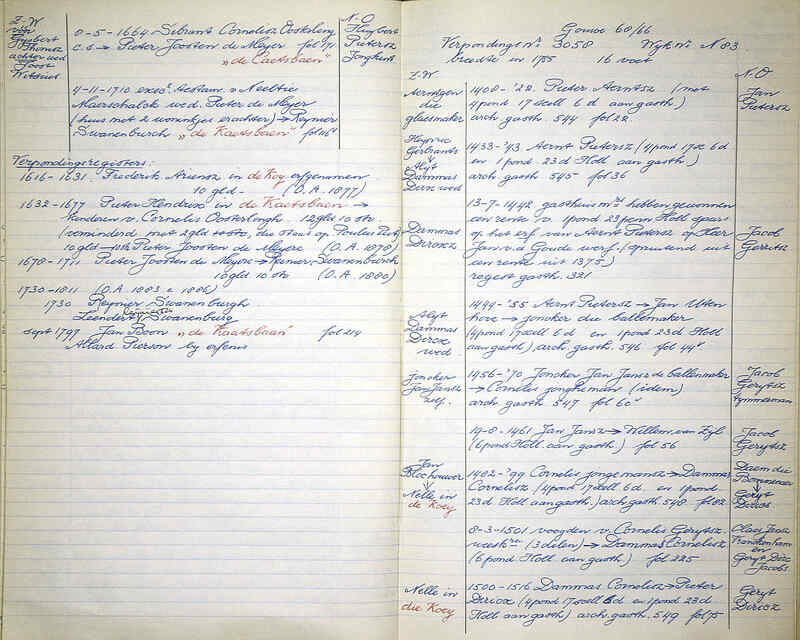 Z.W
Gijsbert
Thomasz
achter wed
Joost
Witsael
8-5-1664 Sibrant Cornelisz Oosterling
c.s → Pieter Joosten de Meyer fol 171
„de Caetsbaen"
N-O
Huybert
Pietersz
Jongkint
4-11-1710 exec. testam. v Neeltie
Maerschalck wed. Pieter de Meyer
(huis met 2 woninkjes erachter) → Reymer
Swanenburch „de Kaetsbaen"
Verpondingregisters:
1616-1631. Frederik Ariensz in de Koy erfgenamen
10 gld - (O.A. 1877)
1632-1677 Pieter Hendricx in de Kaetsbaen →
kinderen v. Cornelis Oosterlingh. 12gld 10 st
10 gld → Pieter Joosten de Meyere (O.A. 1878)
1678-1711 Pieter Joosten de Meyere → Reimer Swanenburch
10gld 10 sto (O.A. 1880)
1730-1811 (O.A. 1883 e 1886)
1730 Reymer Swanenburgh
Leendert Swanenburg
sept 1797 Jan Boon „de Kaatsbaen" fol 214
Allard Pierson by erfenis
Gouwe 60/66
Verpondings No 3058 Wyk No N 83
breedte in 1755 16 voet
Z.W
N.O
Aerntgen
die
glaesmaker
1408-'22. Pieter Aerntsz (met
4 pond 17 stell 6 d aan gasth)
arch gasth. 544 fol 22.
Jan
Pietersz
Heynric
Gerbrants
↓
Alyt
Dammas
Dircx wed
1433-'43 Aernt Pietersz (4 pond 17 sc 6d
en 1 pond. 23d Holl aan gasth)
arch gasth 545 fol 36
Dammas
Diricxz
13-7-1442 gasthuis mrs hebben gewonnen
een rente v. 1 pond 23 penn Holl sjaers
op het erf van Aernt Pietersz op Heer
Jan v.d. Goude werf. (spruitend uit
een rente uit 1375)
regest gasth. 321
Jacob
Gerritsz
Alyt
Dammas
Dircx
wed.
1444-'55 Aernt Pietersz → Jan Uten
hove → joncker die ballemaker
(4 pond 17 scell 6 d en 1 pond 23 d Holl
aan gasth) arch gasth. 546 fol 44v
Joncker
Jan Jansz
zelf.
1456-'70 Joncker Jan Jansz de ballenmaker
→ Cornelis jonghemans (idem)
arch gasth 547 fol 60v
Jacob
Gerytsz
tymmerman
14-8-1461 Jan Jansz → Willem van Zijl
(6 pond Holl. aan gasth.) fol 56
Jacob
Gerytsz
Jan
Blechouwer
↓
Nelle in
de Koey
1482-'99 Cornelis jongemansz → Dammas
Cornelisz (4 pond 17 scell 6d en 1 pond
23 d Holl aan gasth) arch gasth. 548 fol 82
Daem die
↓
Geryt
Diricx
8-3-1501 voogden v. Cornelis Gerytsz
weeskrn (3 delen) → Dammas Cornelisz
(6 pond Holl. aan gasth.) fol 225
Claes Jansz
en
Geryt Dirc
Jacobs.
Nelle in
die Koey
1500-1516 Dammas Cornelisz → Pieter
Diricx (4 pond 17 scell 6d en 1 pond 23 d
Holl aan gasth) arch. gasth. 549 fol 75
Geryt
Diricx